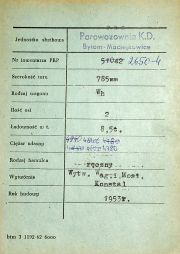 Jednostka służbowa
Parowozownia K.D.
Bytom-Maciejkowice
Nr inwentarza PKP 51042 2650-4
Szerokość toru 785mm
Rodzaj wagonu Wh
Ilość osi 2
Ładowność w t. 8,5t.
Ciężar własny
Rodzaj hamulca ręczny
Wytwórnia Wytw. Wag.i Most.
Konstal
Rok budowy 1953r.
bim 3 1192-62 6000